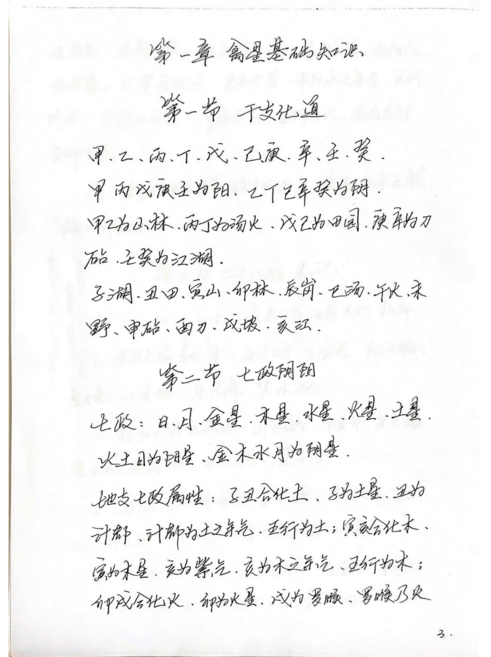 第一章 禽星基础知识
第一节 干支化通
甲、乙、丙、丁、戊、己、庚、辛、壬、癸.
甲丙戊庚壬为阳、乙丁己辛癸为阴.
甲乙为山林、丙丁为汤火、戊己为田园、庚辛为刀
砧、壬癸为江湖.
子湖、丑田、寅山、卯林、辰岗、巳汤、午火、未
野、申砧、酉刀、戌坡、亥江.
第二节 七政阴阳
七政：日、月、金星、木星、水星、火星、土星.
火土日为阳星、金木水月为阴星.
地支七政属性：子丑合化土、子为土星、丑为
计都、计都为土之余气、五行为土；寅亥合化木、
寅为木星、亥为紫气、亥为木之余气、五行为木；
卯戌合化火、卯为火星、戌为罗睺、罗睺乃火
3.